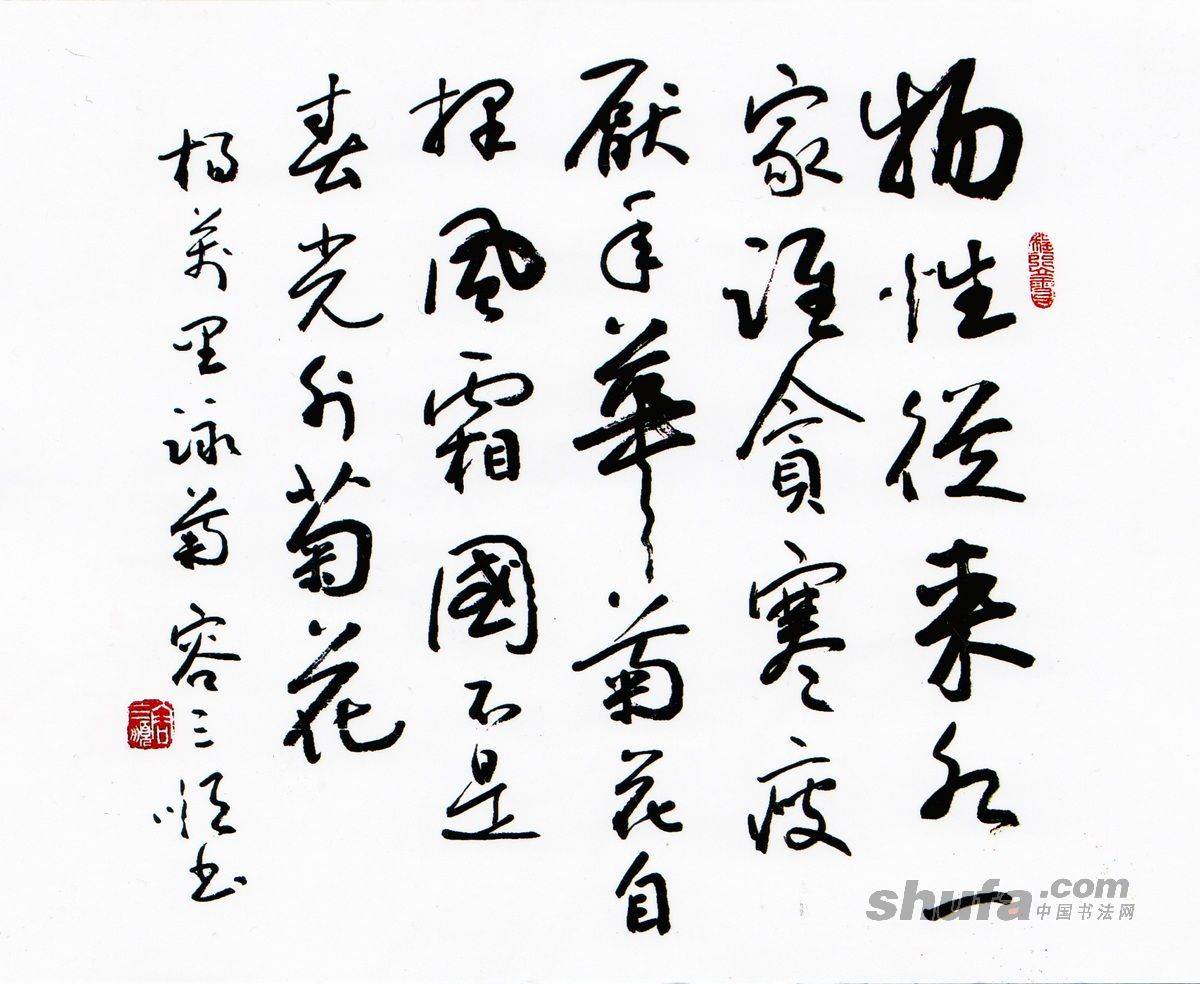 物性從來各一
家誰貪寒瘦
厭年華菊花自
擇風霜國不是
春光外菊花
楊萬里詠菊 容三順书
容三順
shufa.com
中国书法网